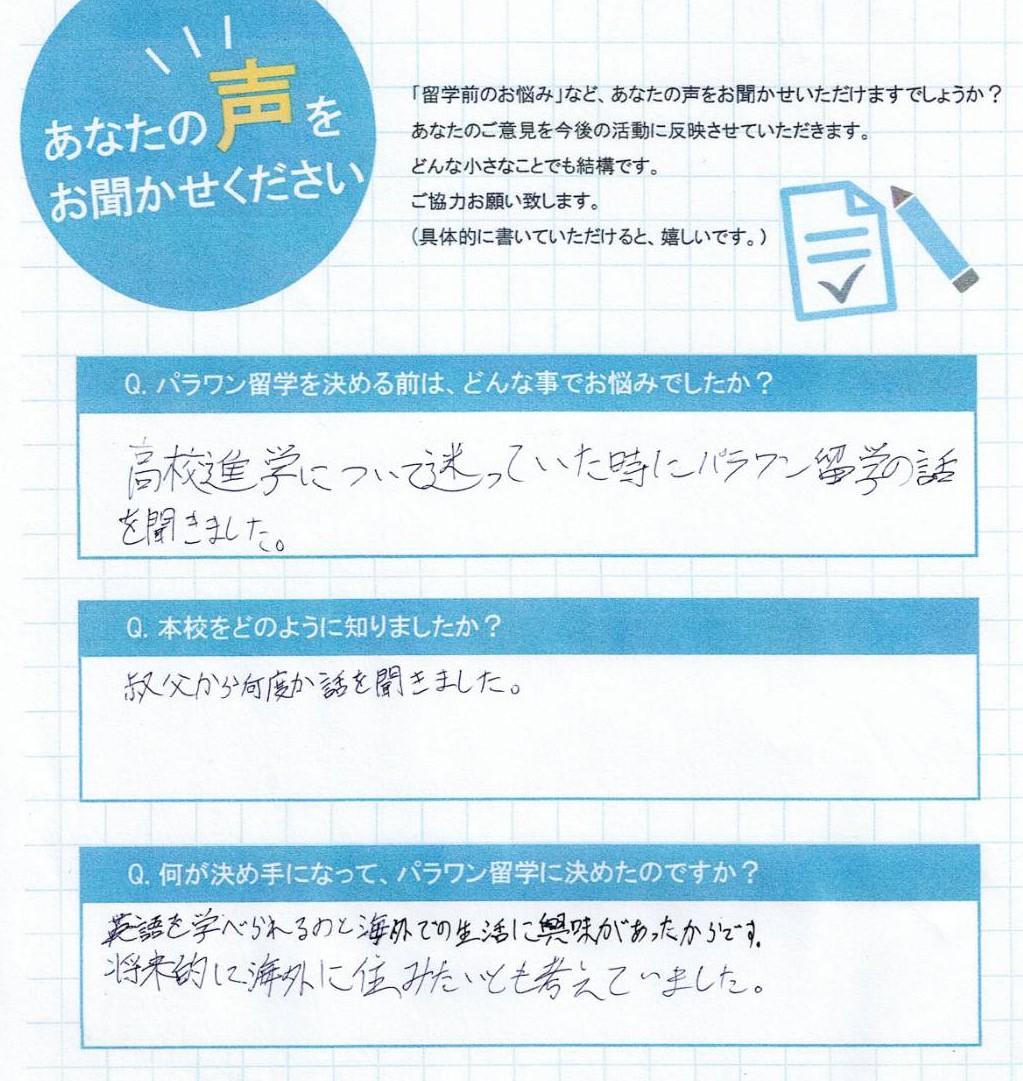 あなたの声を
お聞かせください
「留学前のお悩み」など、あなたの声をお聞かせいただけますでしょうか？
あなたのご意見を今後の活動に反映させていただきます。
どんな小さなことでも結構です。
ご協力お願い致します。
（具体的に書いていただけると、嬉しいです。）
Q. パラワン留学を決める前は、どんな事でお悩みでしたか？
高校進学について迷っていた時にパラワン留学の話
を聞きました。
Q. 本校をどのように知りましたか？
叔父から何度か話を聞きました。
Q. 何が決め手になって、パラワン留学に決めたのですか？
英語を学べられるのと海外での生活に興味があったからです。
将来的に海外に住みたいとも考えていました。